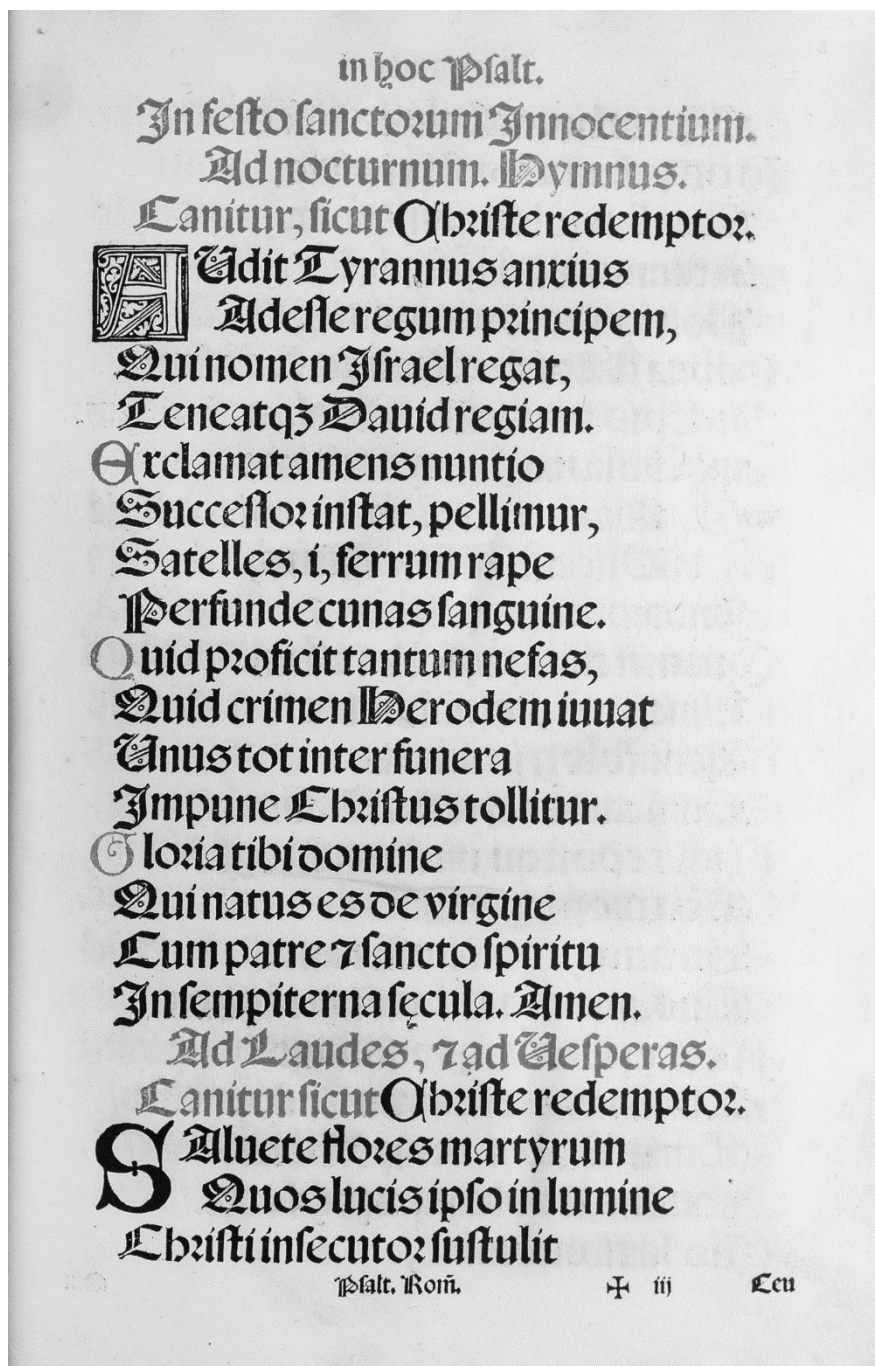 in hoc Psalt.
In festo sanctorum Innocentium.
Ad nocturnum. Hymnus.
Canitur, sicut Christe redemptor.
AUdit Tyrannus anxius
Adesse regum principem,
Qui nomen Israel regat,
Teneatqꝫ Dauid regiam.
Exclamat amens nuntio
Successor instat, pellimur,
Satelles, i, ferrum rape
Perfunde cunas sanguine.
Quid proficit tantum nefas,
Quid crimen Herodem iuuat
Unus tot inter funera
Impune Christus tollitur.
Gloria tibi domine
Qui natus es de virgine
Cum patre ⁊ sancto spiritu
In sempiterna sęcula. Amen.
Ad Laudes, ⁊ ad Uesperas.
Canitur sicut Christe redemptor.
SAluete flores martyrum
Quos lucis ipso in lumine
Christi insecutor sustulit
Psalt. Rom̃. ✠ iij Ceu